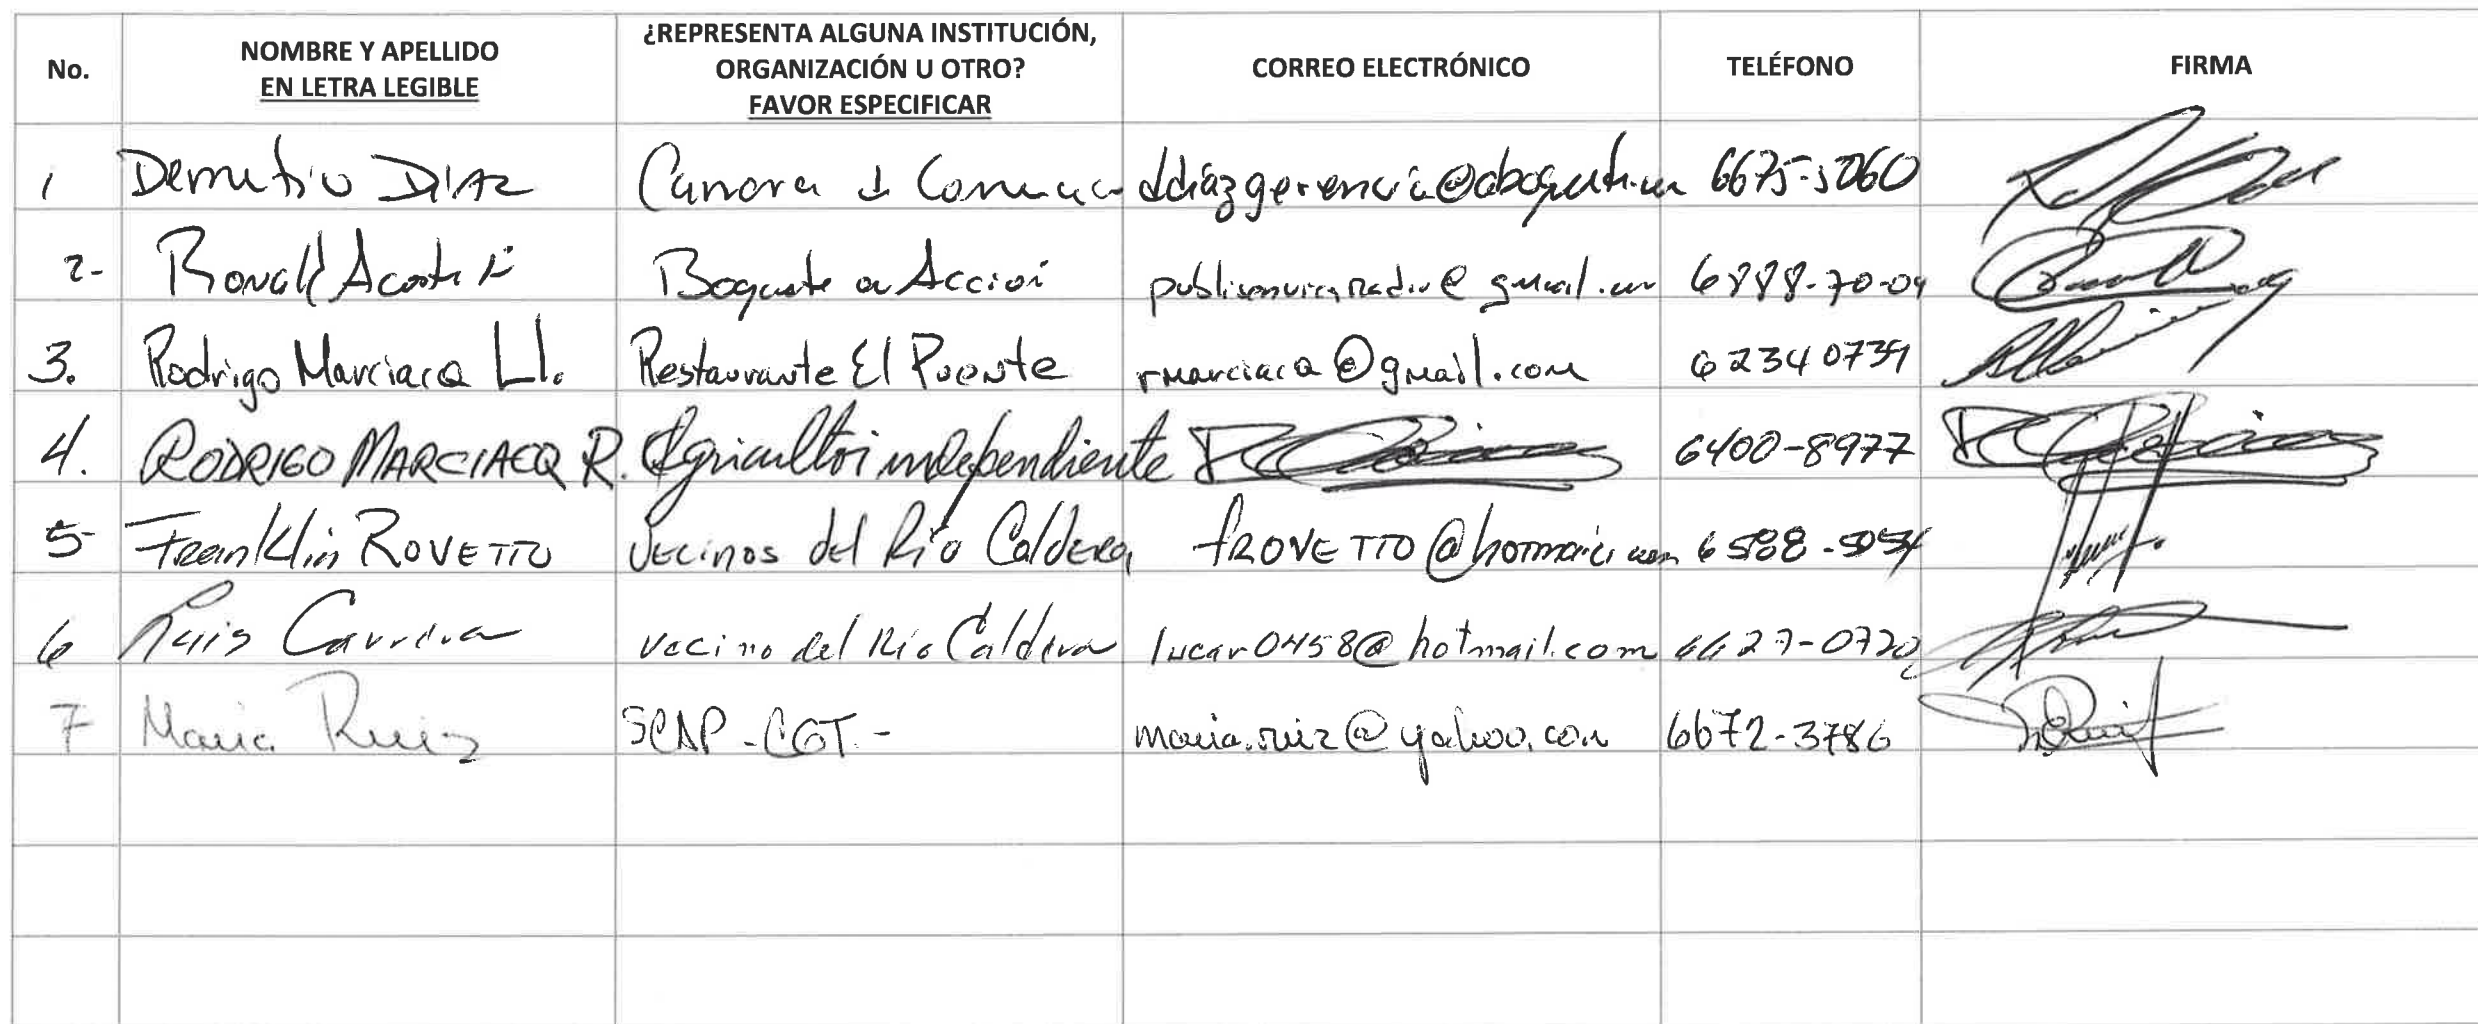 No.
NOMBRE Y APELLIDO
EN LETRA LEGIBLE
¿REPRESENTA ALGUNA INSTITUCIÓN,
ORGANIZACIÓN U OTRO?
FAVOR ESPECIFICAR
CORREO ELECTRÓNICO
TELÉFONO
FIRMA
1 Demetrio DIAZ 6675-5060
2- Ronald Acosta Boquete en Acción 6888-70-09
3. Rodrigo Marciacq Ll. Restaurante El Puente rmarciacq@gmail.com 62340739
4. RODRIGO MARCIACQ R. Agricultor independiente 6400-8977
5- Franklin ROVETTO Vecinos del Río Caldera fROVETTO@hotmail.com
6 Luis Carrera vecino del Río Caldera lucar0458@hotmail.com 6627-0720
7 Maria Ruiz maria.ruiz@yahoo.com 6672-3786